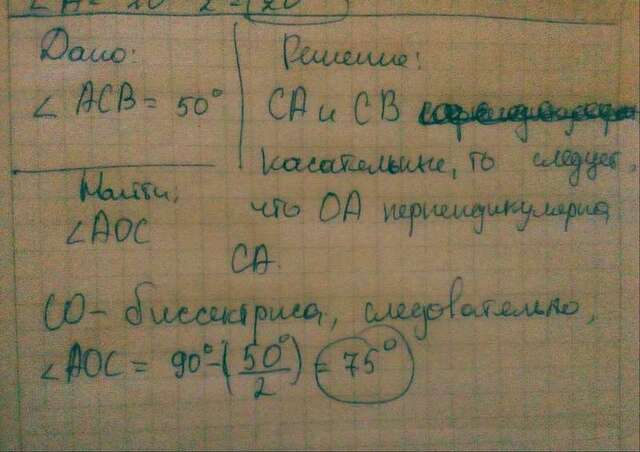 Дано:
∠ ACB = 50°
Найти:
∠AOC
Решение:
CA и CB
касательные, то следует,
что OA перпендикулярна
CA.
CO - биссектриса, следовательно,
∠AOC = 90° - (50°/2) = 75°